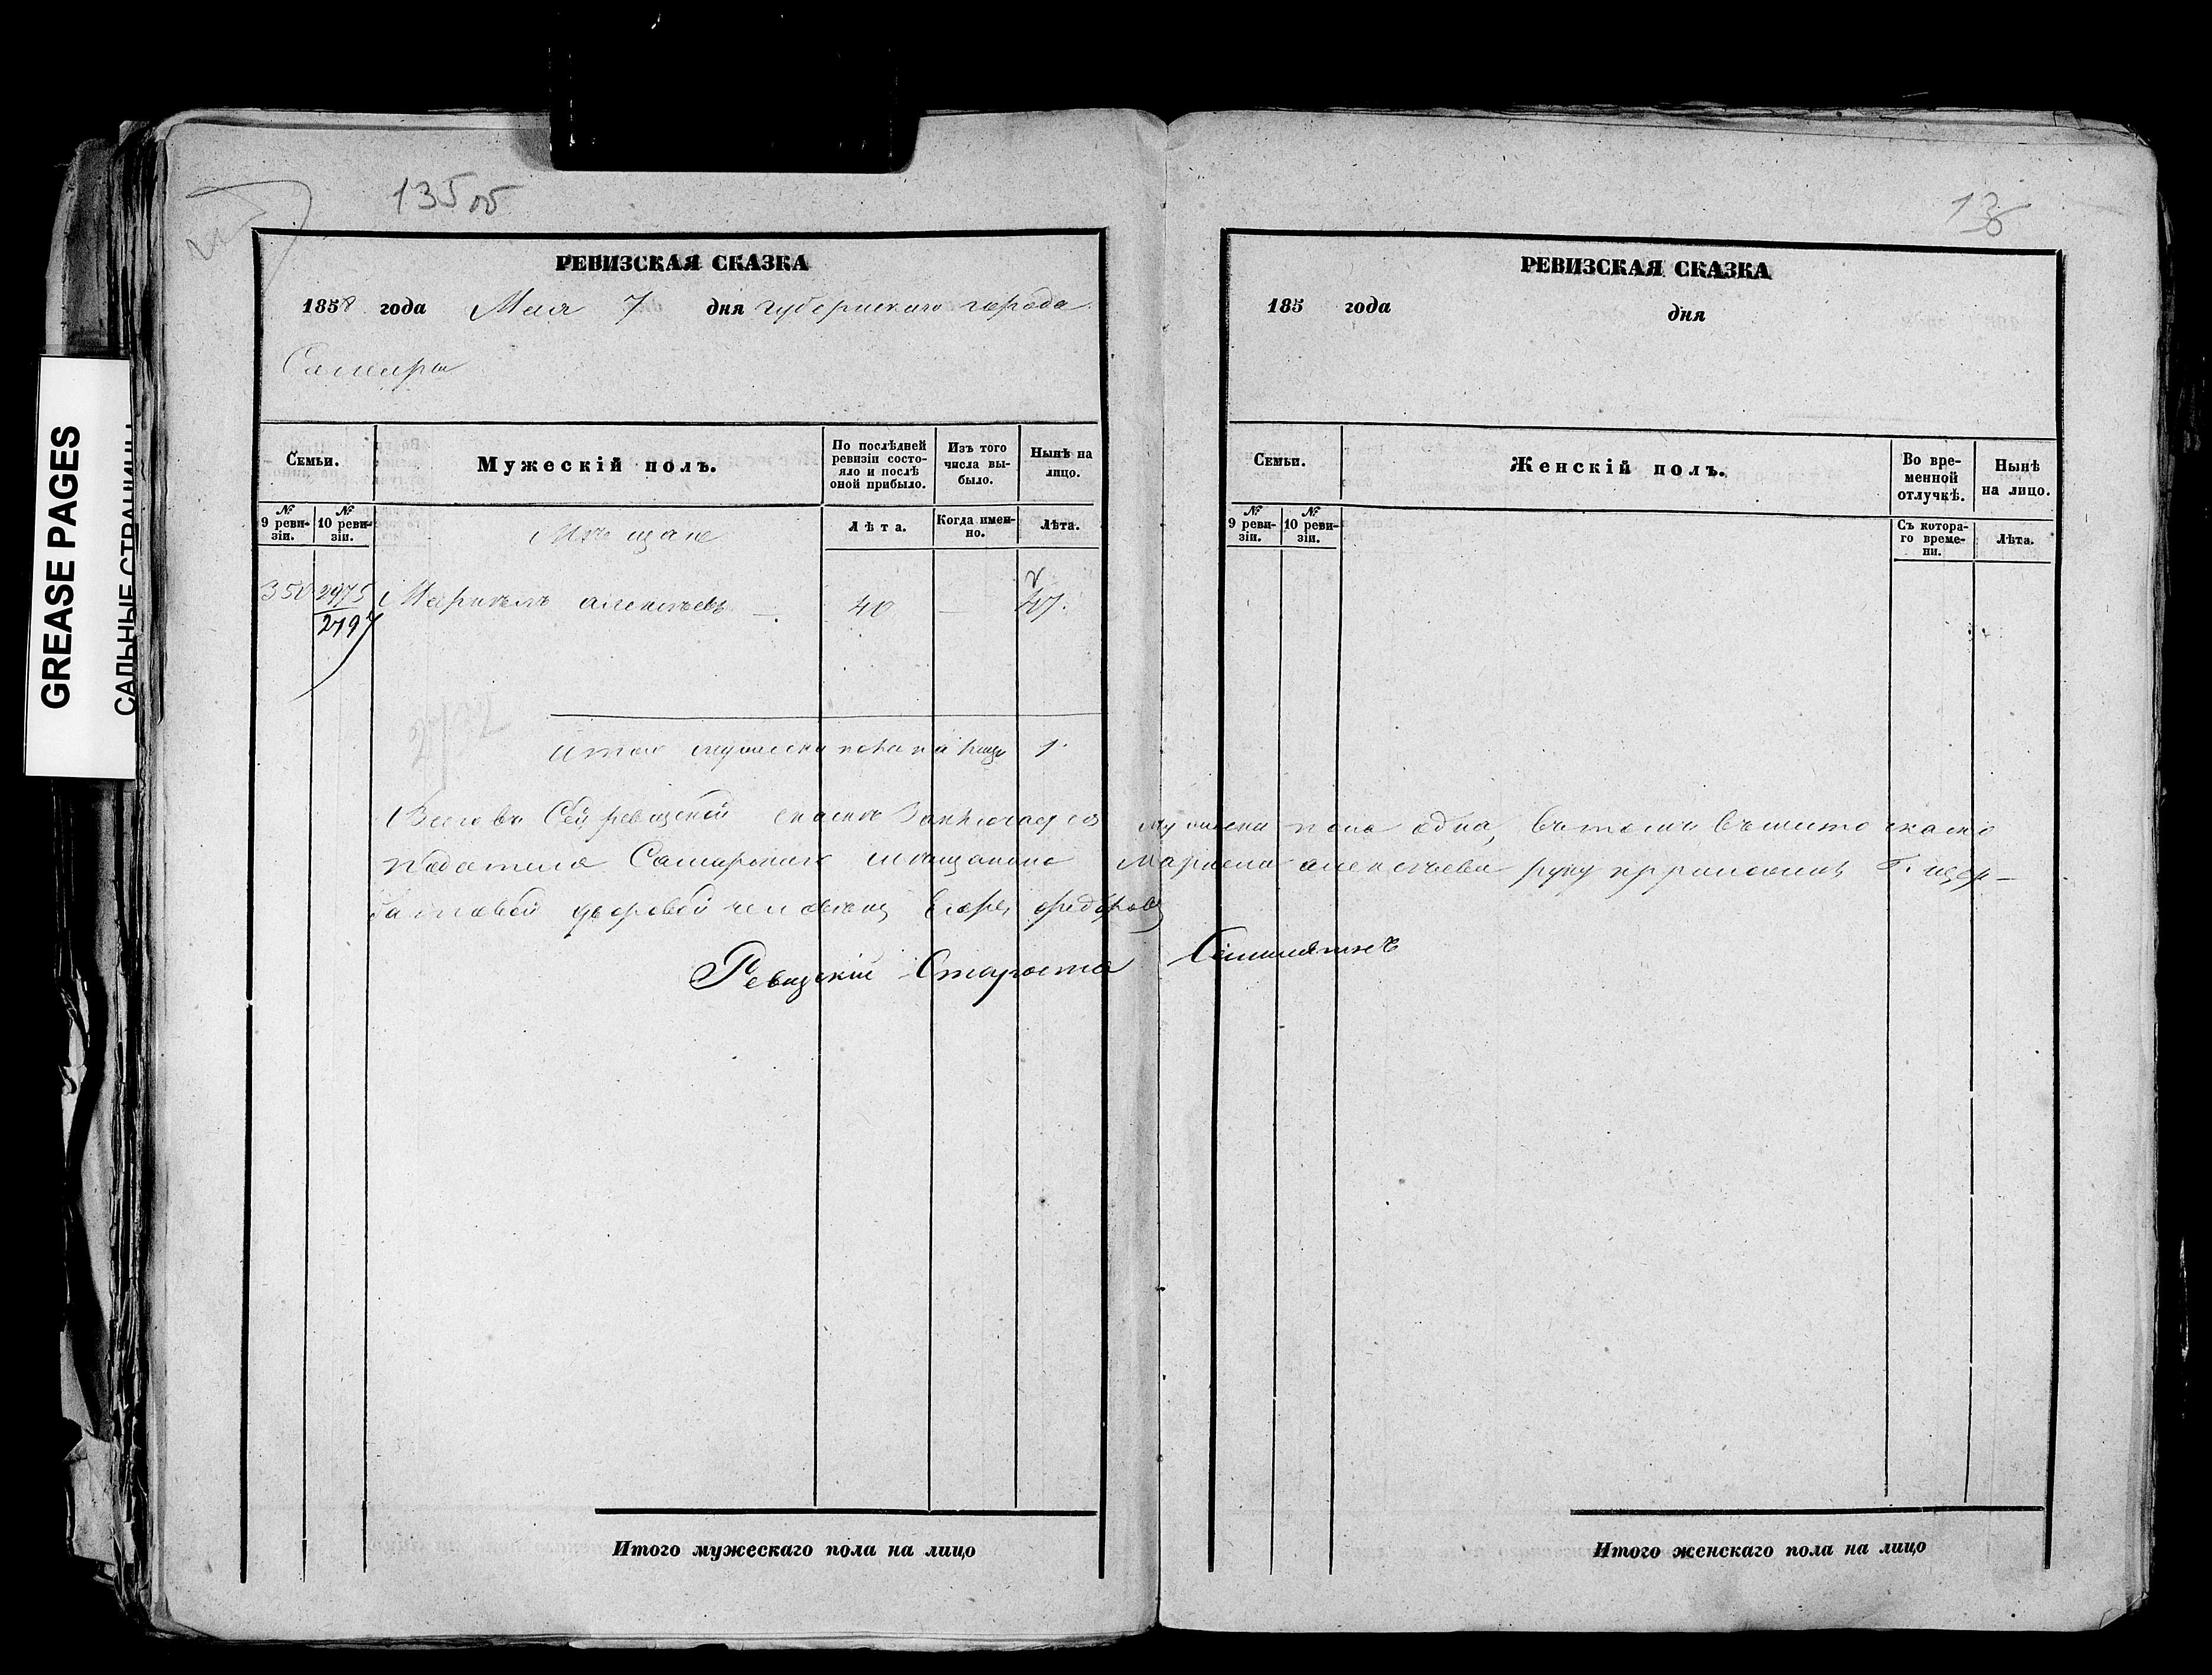 135 об
136
GREASE PAGES
САЛЬНЫЕ СТРАНИЦЫ
РЕВИЗСКАЯ СКАЗКА
1858 года Мая 7 дня губернскаго города
Самары
Семьи.
Мужескій полъ.
По послѣдней ревизіи состо-
яло и послѣ оной прибыло.
Изъ того числа вы-
было.
Нынѣ на лицо.
№ 9 реви-
зіи.
№ 10 реви-
зіи.
Мѣщане
Лѣта.
Когда имен-
но.
Лѣта.
350 2975 Алексѣевъ — 40 — 47.
2797
Итого мужеска пола на лицо 1.
Всего въ сей ревизской сказкѣ заключается мужеска пола одна, въ томъ вѣсто сказко
подателя Самарскаго мѣщанина алексѣева руку приложилъ Г.
дворовой человекъ Егоръ федоровъ
Ревизскій Староста
Итого мужескаго пола на лицо
РЕВИЗСКАЯ СКАЗКА
185 года дня
Семьи.
Женскій полъ.
Во вре-
менной отлучкѣ.
Нынѣ на лицо.
№ 9 реви-
зіи.
№ 10 реви-
зіи.
Съ котора-
го време-
ни.
Лѣта.
Итого женскаго пола на лицо